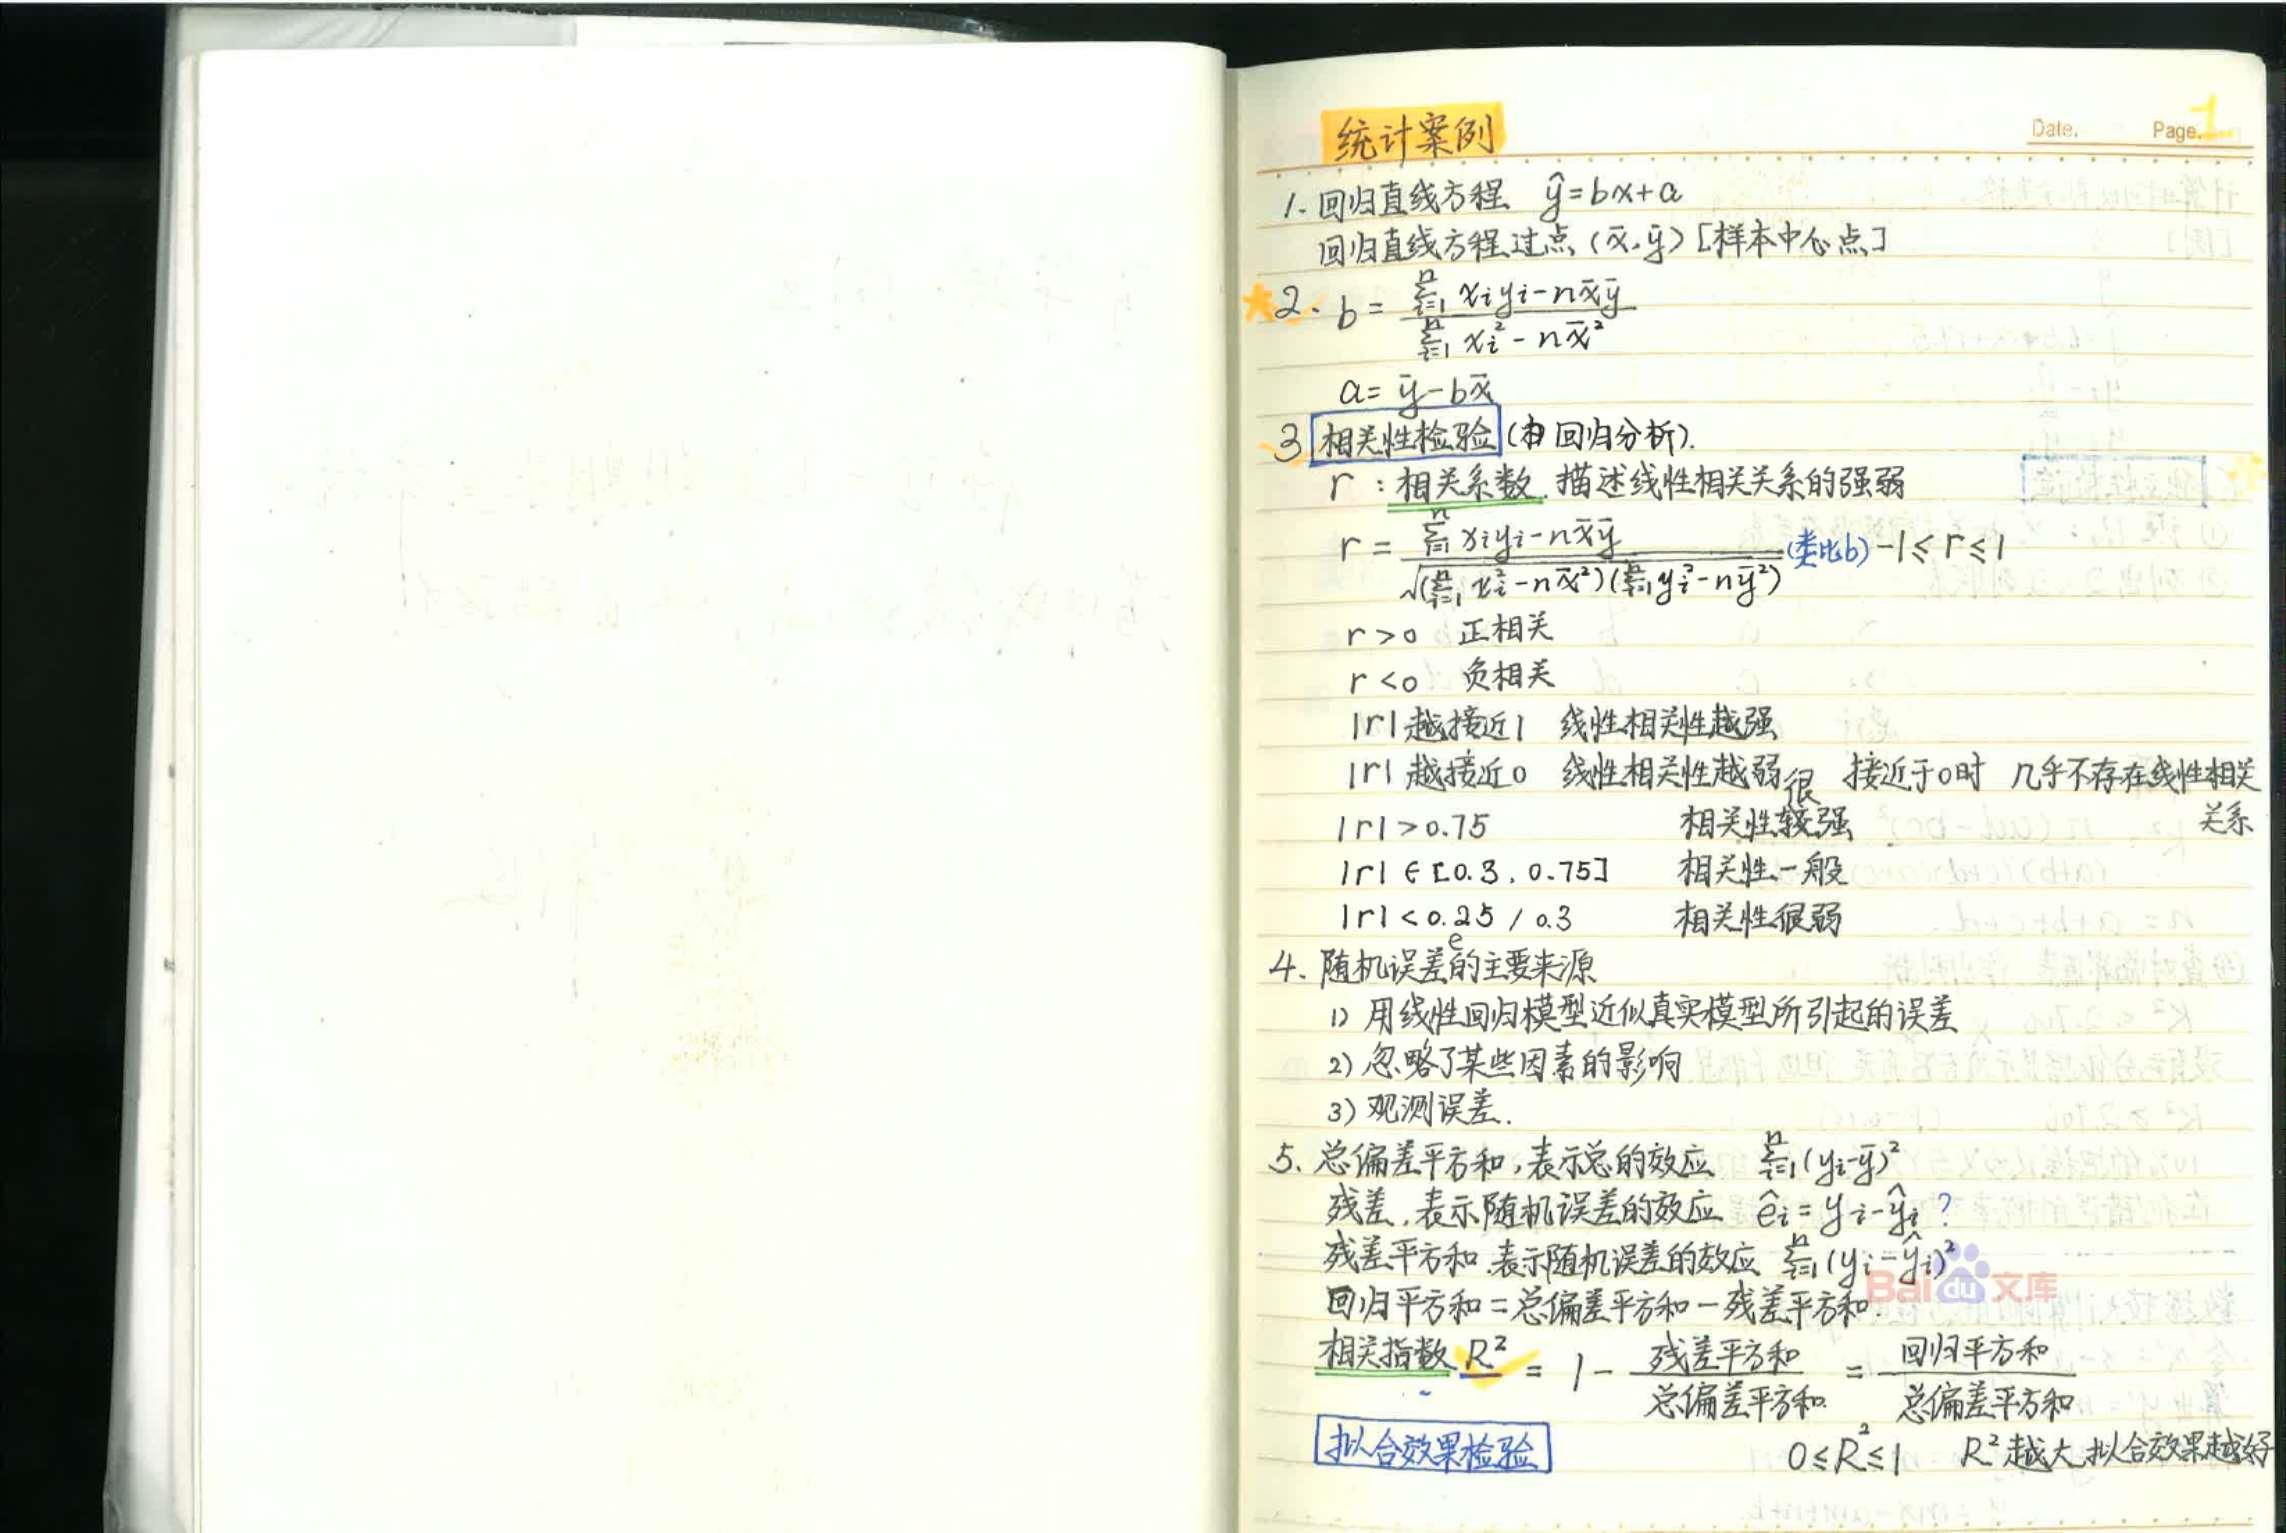 统计案例
Date.
Page. 1
1. 回归直线方程 ŷ=bx+a
回归直线方程过点 (x̄,ȳ) [样本中心点]
★2. b = (∑ⁿᵢ₌₁ xᵢyᵢ-nx̄ȳ) / (∑ⁿᵢ₌₁ xᵢ²-nx̄²)
a=ȳ-bx̄
3 相关性检验 (由回归分析).
r : 相关系数. 描述线性相关关系的强弱
r = (∑ⁿᵢ₌₁ xᵢyᵢ-nx̄ȳ) / √((∑ⁿᵢ₌₁ xᵢ²-nx̄²)(∑ⁿᵢ₌₁ yᵢ²-nȳ²)) (类比b) -1≤r≤1
r>0 正相关
r<0 负相关
|r|越接近1 线性相关性越强
|r|越接近0 线性相关性越弱 接近于0时 几乎不存在线性相关
关系
|r|>0.75 相关性很强
|r|∈[0.3,0.75] 相关性一般
|r|<0.25/0.3 相关性很弱
4. 随机误差e的主要来源
1) 用线性回归模型近似真实模型所引起的误差
2) 忽略了某些因素的影响
3) 观测误差.
5. 总偏差平方和,表示总的效应 ∑ⁿᵢ₌₁(yᵢ-ȳ)²
残差,表示随机误差的效应 êᵢ=yᵢ-ŷᵢ ?
残差平方和.表示随机误差的效应 ∑ⁿᵢ₌₁(yᵢ-ŷᵢ)²
回归平方和=总偏差平方和-残差平方和.
相关指数 R² = 1 - 残差平方和/总偏差平方和 = 回归平方和/总偏差平方和
拟合效果检验 0≤R²≤1 R²越大,拟合效果越好
Baidu文库